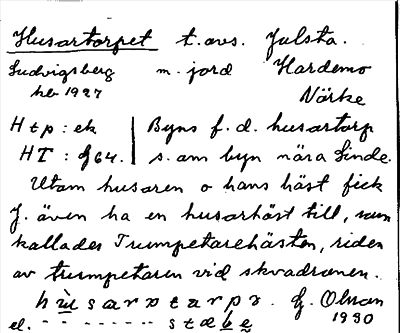 Husartorpet t. avs. Julsta.
Ludvigsberg m. jord Hardemo
hbr 1927 Närke
Htp: ek Byns f. d. husartorp
HT: J64. s. om byn nära Linde.
Utom husaren o hans häst fick
J. även ha en husarhäst till, som
kallades Trumpetarehästen, riden
av trumpetaren vid skvadronen.
G. Olson
el. 1930